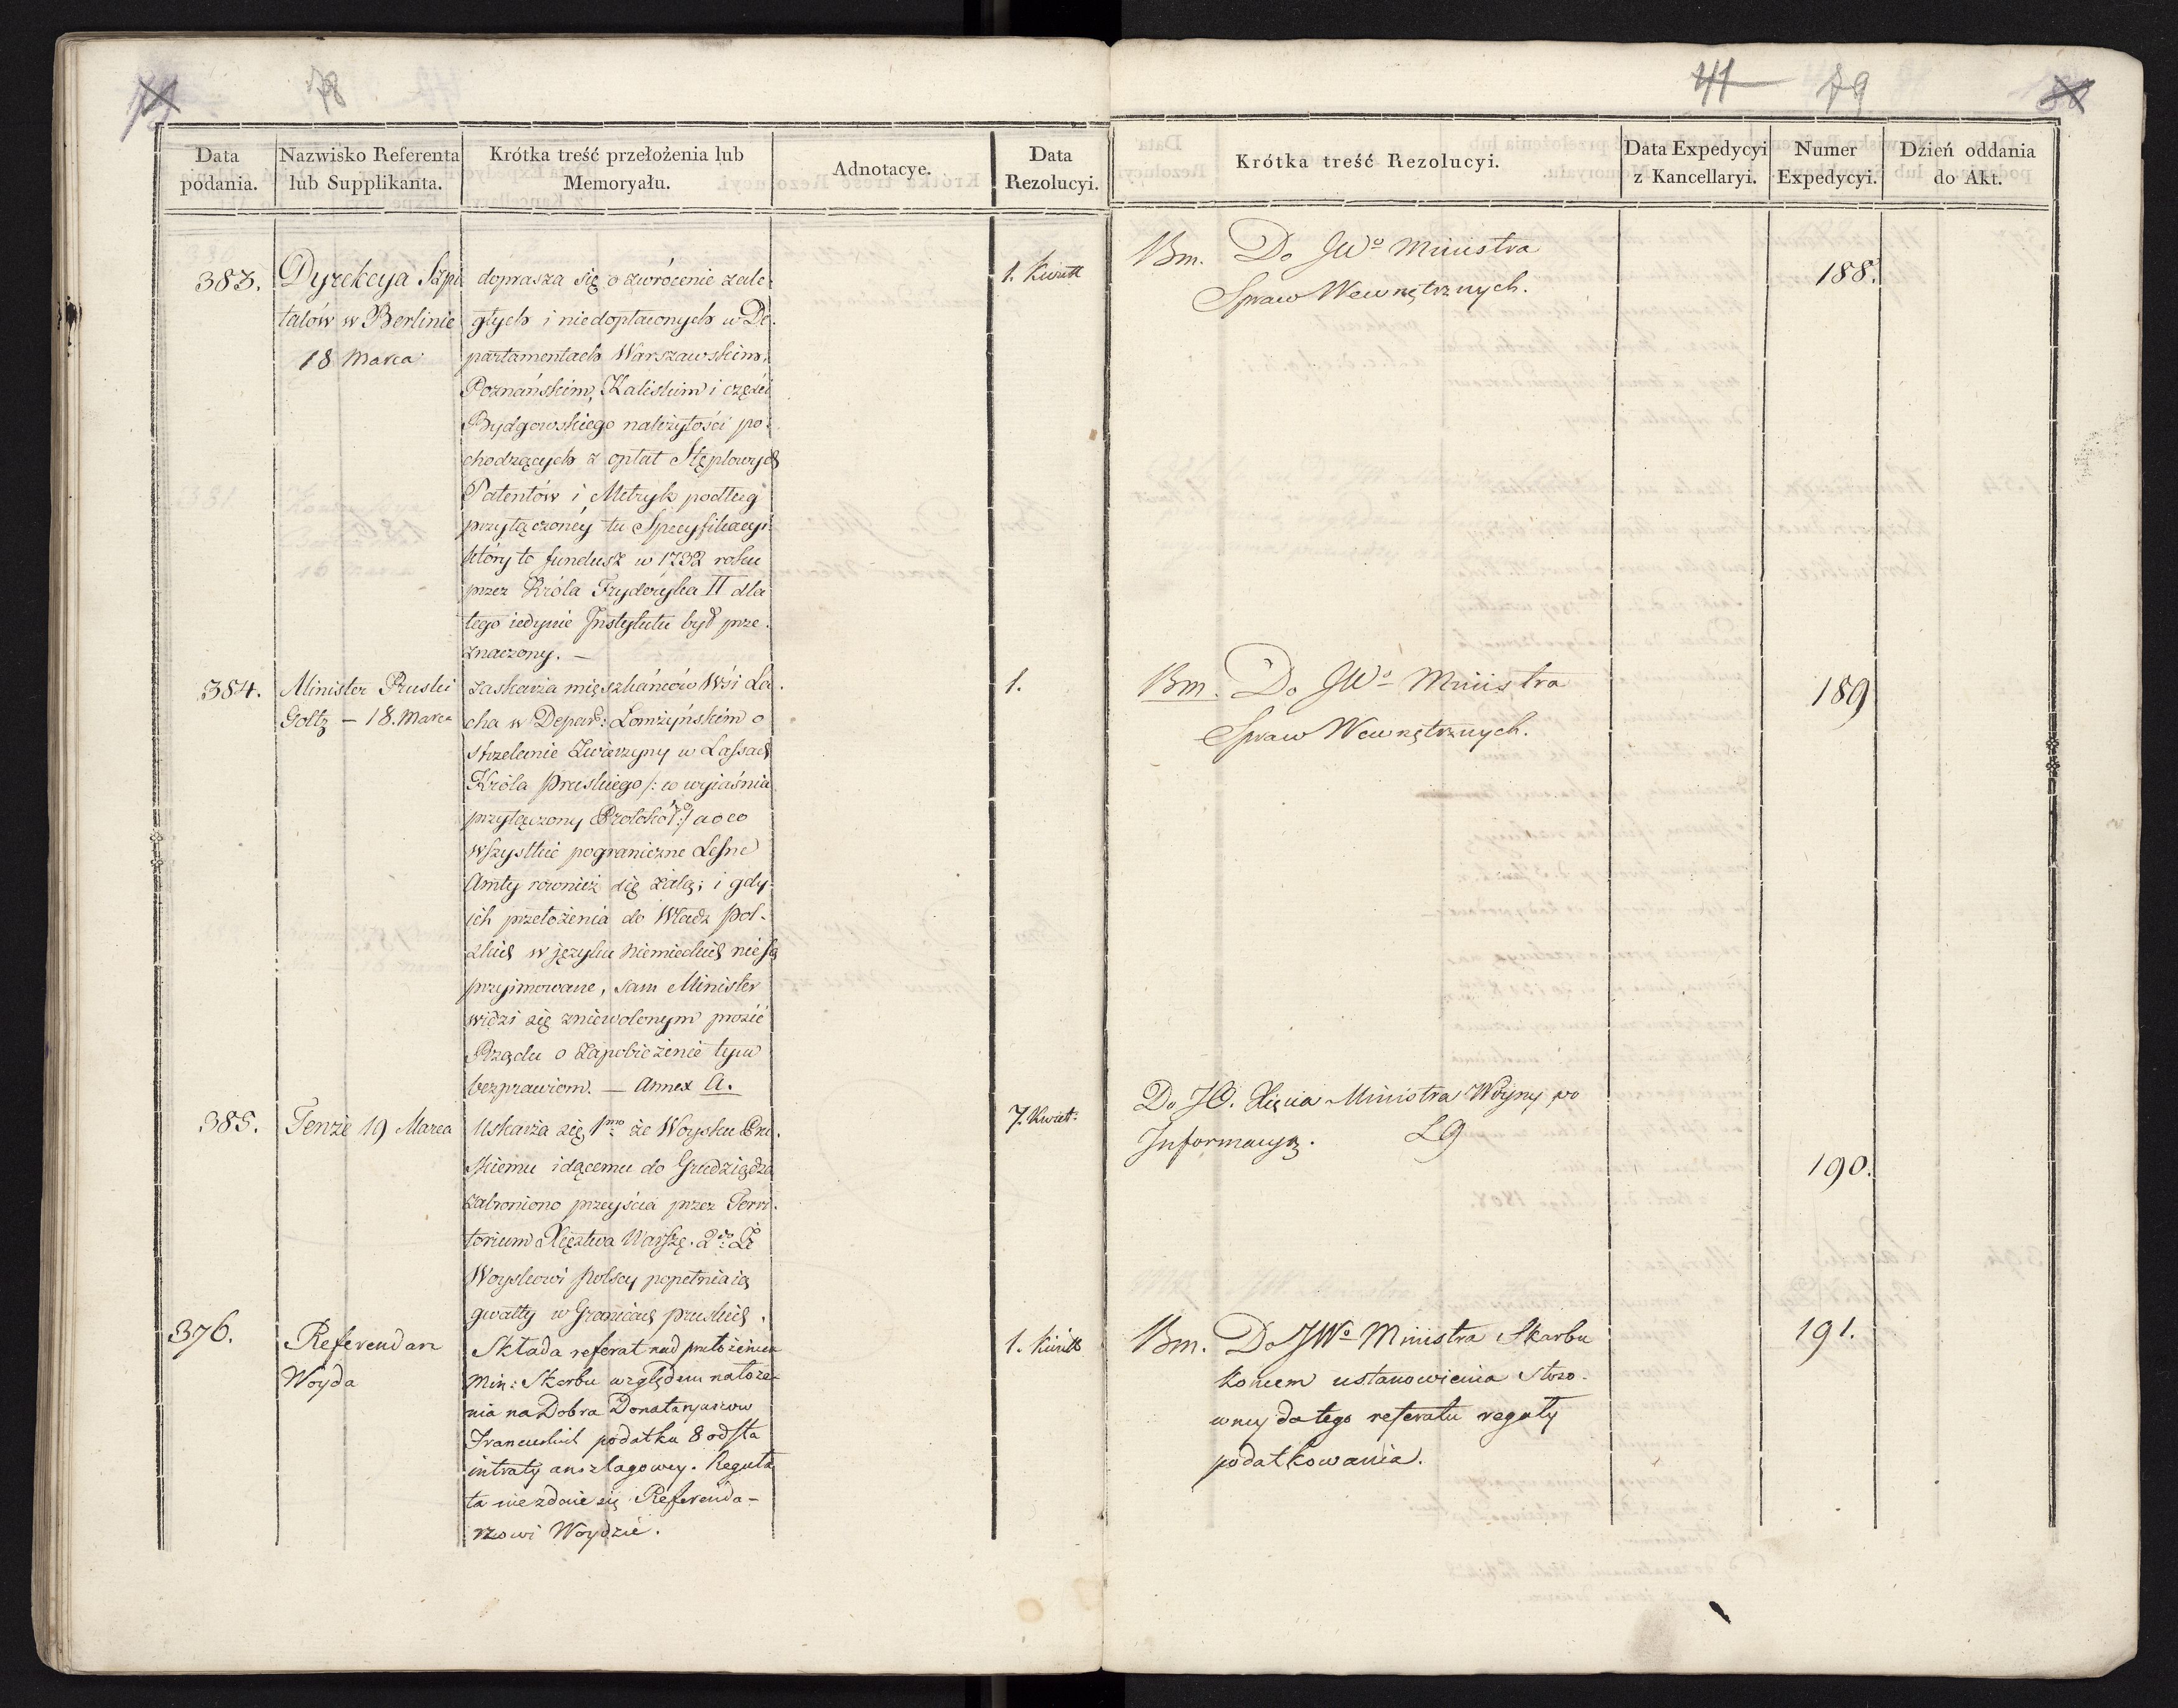 78
41 79
Data podania.
Nazwisko Referenta lub Supplikanta.
Krótka treść przełożenia lub Memoryału.
Adnotacye.
Data Rezolucyi.
Krótka treść Rezolucyi.
Data Expedycyi z Kancellaryi.
Numer Expedycyi.
Dzień oddania do Akt.
383.
Dyrekcya Szpi
talów w Berlinie
18 Marca
doprasza się o zwrócenie zale
głych i niedopłaconych w De.
partamentach Warszawskim,
Poznańskim, Kaliskim i części
Bydgowskiego należytości po
chodzących z opłat Stęplowych
Patentów i Metryk podług
przyłączoney tu Specyfikacyi
który to fundusz w 1732 roku
przez Króla Fryderyka II dla
tego iedynie Instytutu był prze.
znaczony. —
1. Kwiet
Bm. Do JWo Ministra
Spraw Wewnętrznych.
188.
384.
Minister Pruski
Goltz – 18. Marca
zaskarża mięszkańców Wsi La
cha w Depar: Łomżyńskim o
strzelanie Zwierzyny w Lassach
Króla Pruskiego /: co wyiaśnia
przyłączony Protokół :/ a o co
wszystkie pograniczne Leśne
Amty rownież się żalą; i gdy
ich przełożenia do Władz Pol-
skich w języku Niemieckich nie są
przyimowane, sam Minister
widzi się zniewolonym prosić
Rządu o zapobieżenie tym
bezprawiom. — Annex A.
1.
Bm. Do JWo Ministra
Spraw Wewnętrznych.
189
385.
Tenże 19 Marca
Uskarża się, 1mo że Woysku Pru.
skiemu idącemu do Grudziądza
zabroniono przeyścia przez Terri.
torium Xięztwa Warszę. 2do Że
Woyskowi Polscy popełniaią
gwałty w Granicach pruskich.
7. Kwiet:
Do JO. Xięcia Ministra Woyny po
Informacyą.
190.
376.
Referendarz
Woyda
Składa referat nad przełożeniem
Min: Skarbu względem nałoże-
nia na Dobra Donataryuszow
Francuskich podatku 8 od sta
intraty anszlagowey. Reguła
ta niezdaie się Referenda-
rzowi Woydzie.
1. Kwiet
Bm. Do JWo Ministra Skarbu
Koncem ustanowienia stoso-
wney do tego referatu reguły
podatkowania.
191.